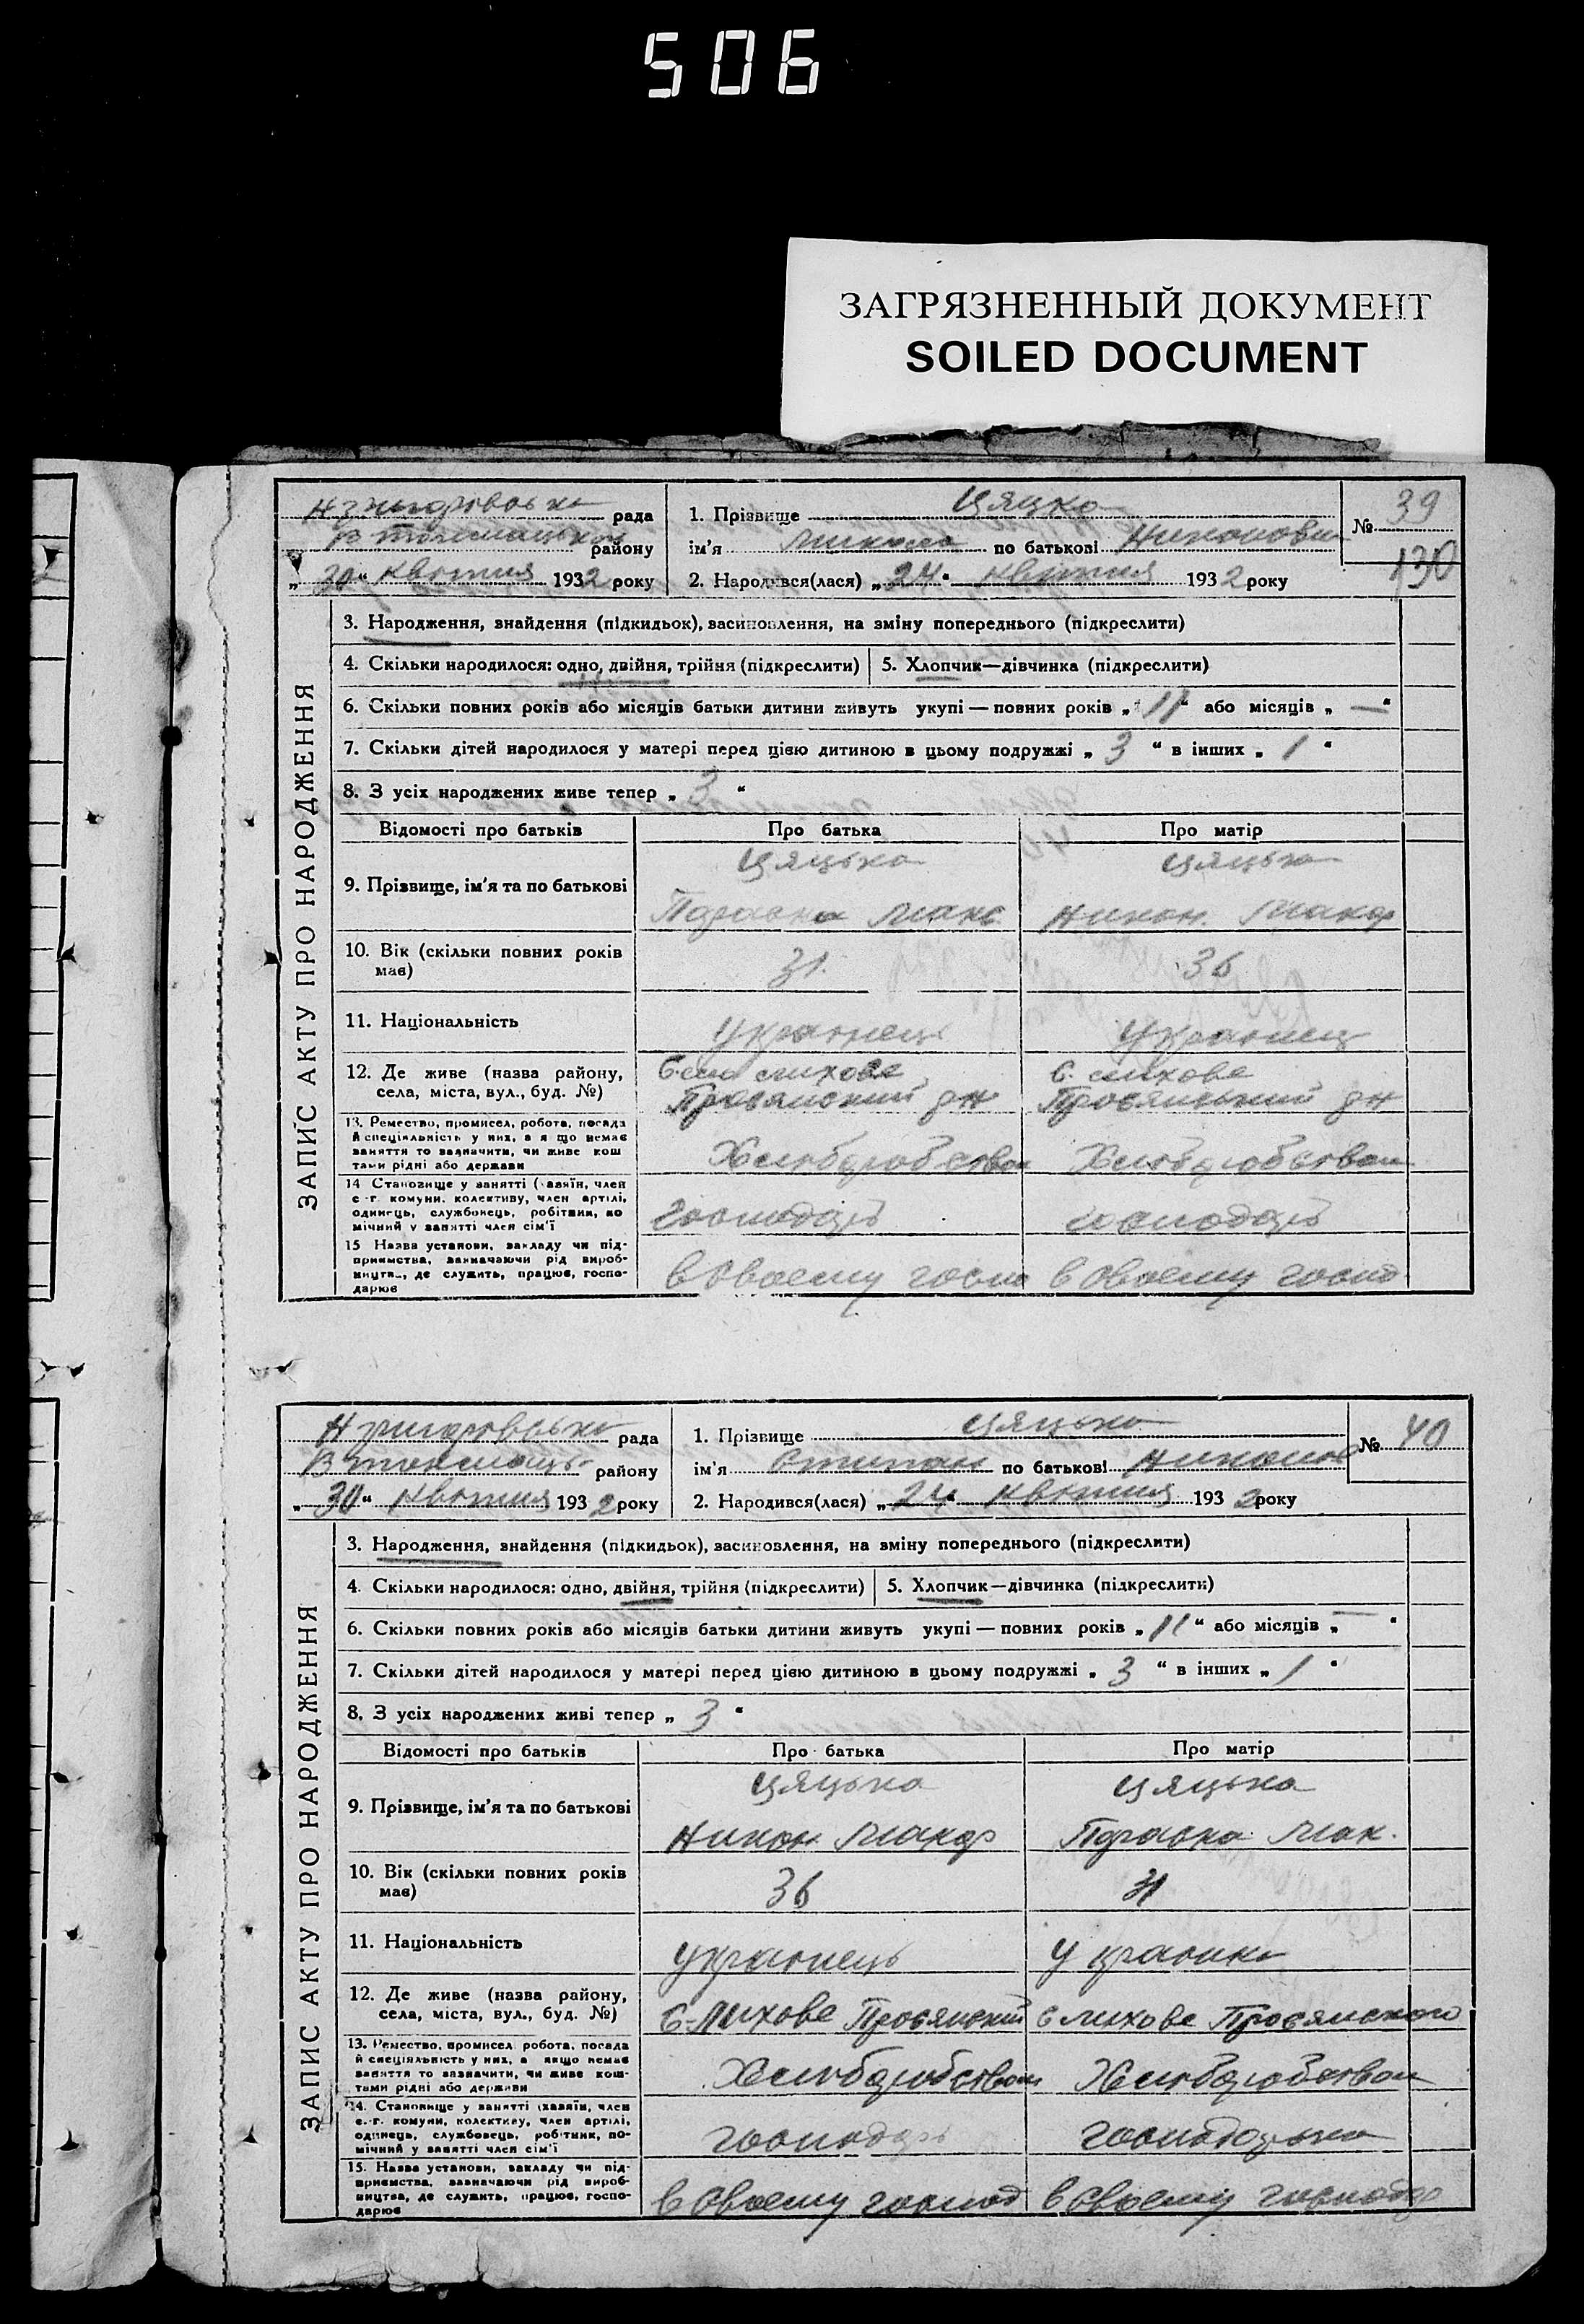 506
ЗАГРЯЗНЕННЫЙ ДОКУМЕНТ
SOILED DOCUMENT
ЗАПИС АКТУ ПРО НАРОДЖЕННЯ
рада
району
„30“ квітня 1932 року
1. Прізвище Цяцко
ім'я Микола по батькові Никонович
2. Народився(лася) „24“ квітня 1932 року
№ 39
130
3. Народження, знайдення (підкидьок), засиновлення, на зміну попереднього (підкреслити)
4. Скільки народилося: одно, двійня, трійня (підкреслити) 5. Хлопчик—дівчинка (підкреслити)
6. Скільки повних років або місяців батьки дитини живуть укупі — повних років „11“ або місяців „—“
7. Скільки дітей народилося у матері перед цією дитиною в цьому подружжі „3“ в інших „1“
8. З усіх народжених живе тепер „3“
Відомості про батьків Про батька Про матір
9. Прізвище, ім'я та по батькові
Цяцька Цяцька
Параска Макс Никон. Макар
10. Вік (скільки повних років має) 31. 36
11. Національність Українець Українец
12. Де живе (назва району, села, міста, вул., буд. №)
с. лихове
Просянский рн Просянський рн
13. Ремество, промисел, робота, посада й спеціяльність у них, а якщо немає заняття то зазначити, чи живе коштами рідні або держави
Хліборобством Хліборобством
14 Становище у занятті (хазяїн, член с.-г. комуни, колективу, член артілі, одинець, службовець, робітник, помічний у занятті член сім'ї
господарь господарь
15 Назва установи, закладу чи підприємства, зазначаючи рід виробництва, де служить, працює, господарює
в своему госпо в своему господ
ЗАПИС АКТУ ПРО НАРОДЖЕННЯ
рада
району
„30“ квітня 1932 року
1. Прізвище Цяцька
ім'я Степан по батькові Никонов
2. Народився(лася) „24“ квітня 1932 року
№ 40
3. Народження, знайдення (підкидьок), засиновлення, на зміну попереднього (підкреслити)
4. Скільки народилося: одно, двійня, трійня (підкреслити) 5. Хлопчик—дівчинка (підкреслити)
6. Скільки повних років або місяців батьки дитини живуть укупі — повних років „11“ або місяців „—“
7. Скільки дітей народилося у матері перед цією дитиною в цьому подружжі „3“ в інших „1“
8. З усіх народжених живі тепер „3“
Відомості про батьків Про батька Про матір
9. Прізвище, ім'я та по батькові
Цяцька Цяцька
Никон Макар Параска Мак.
10. Вік (скільки повних років має) 36 31
11. Національність Українець Українка
12. Де живе (назва району, села, міста, вул., буд. №)
с-Лихове Просянский с лихове Просянского
13. Ремество, промисел, робота, посада й спеціяльність у них, а якщо немає заняття то зазначити, чи живе коштами рідні або держави
Хліборобством Хліборобством
14. Становище у занятті (хазяїн, член с.-г. комуни, колективу, член артілі, одинець, службовець, робітник, помічний у занятті член сім'ї
господарь господарька
15. Назва установи, закладу чи підприємства, зазначаючи рід виробництва, де служить, працює, господарює
в своему господ в своему господар